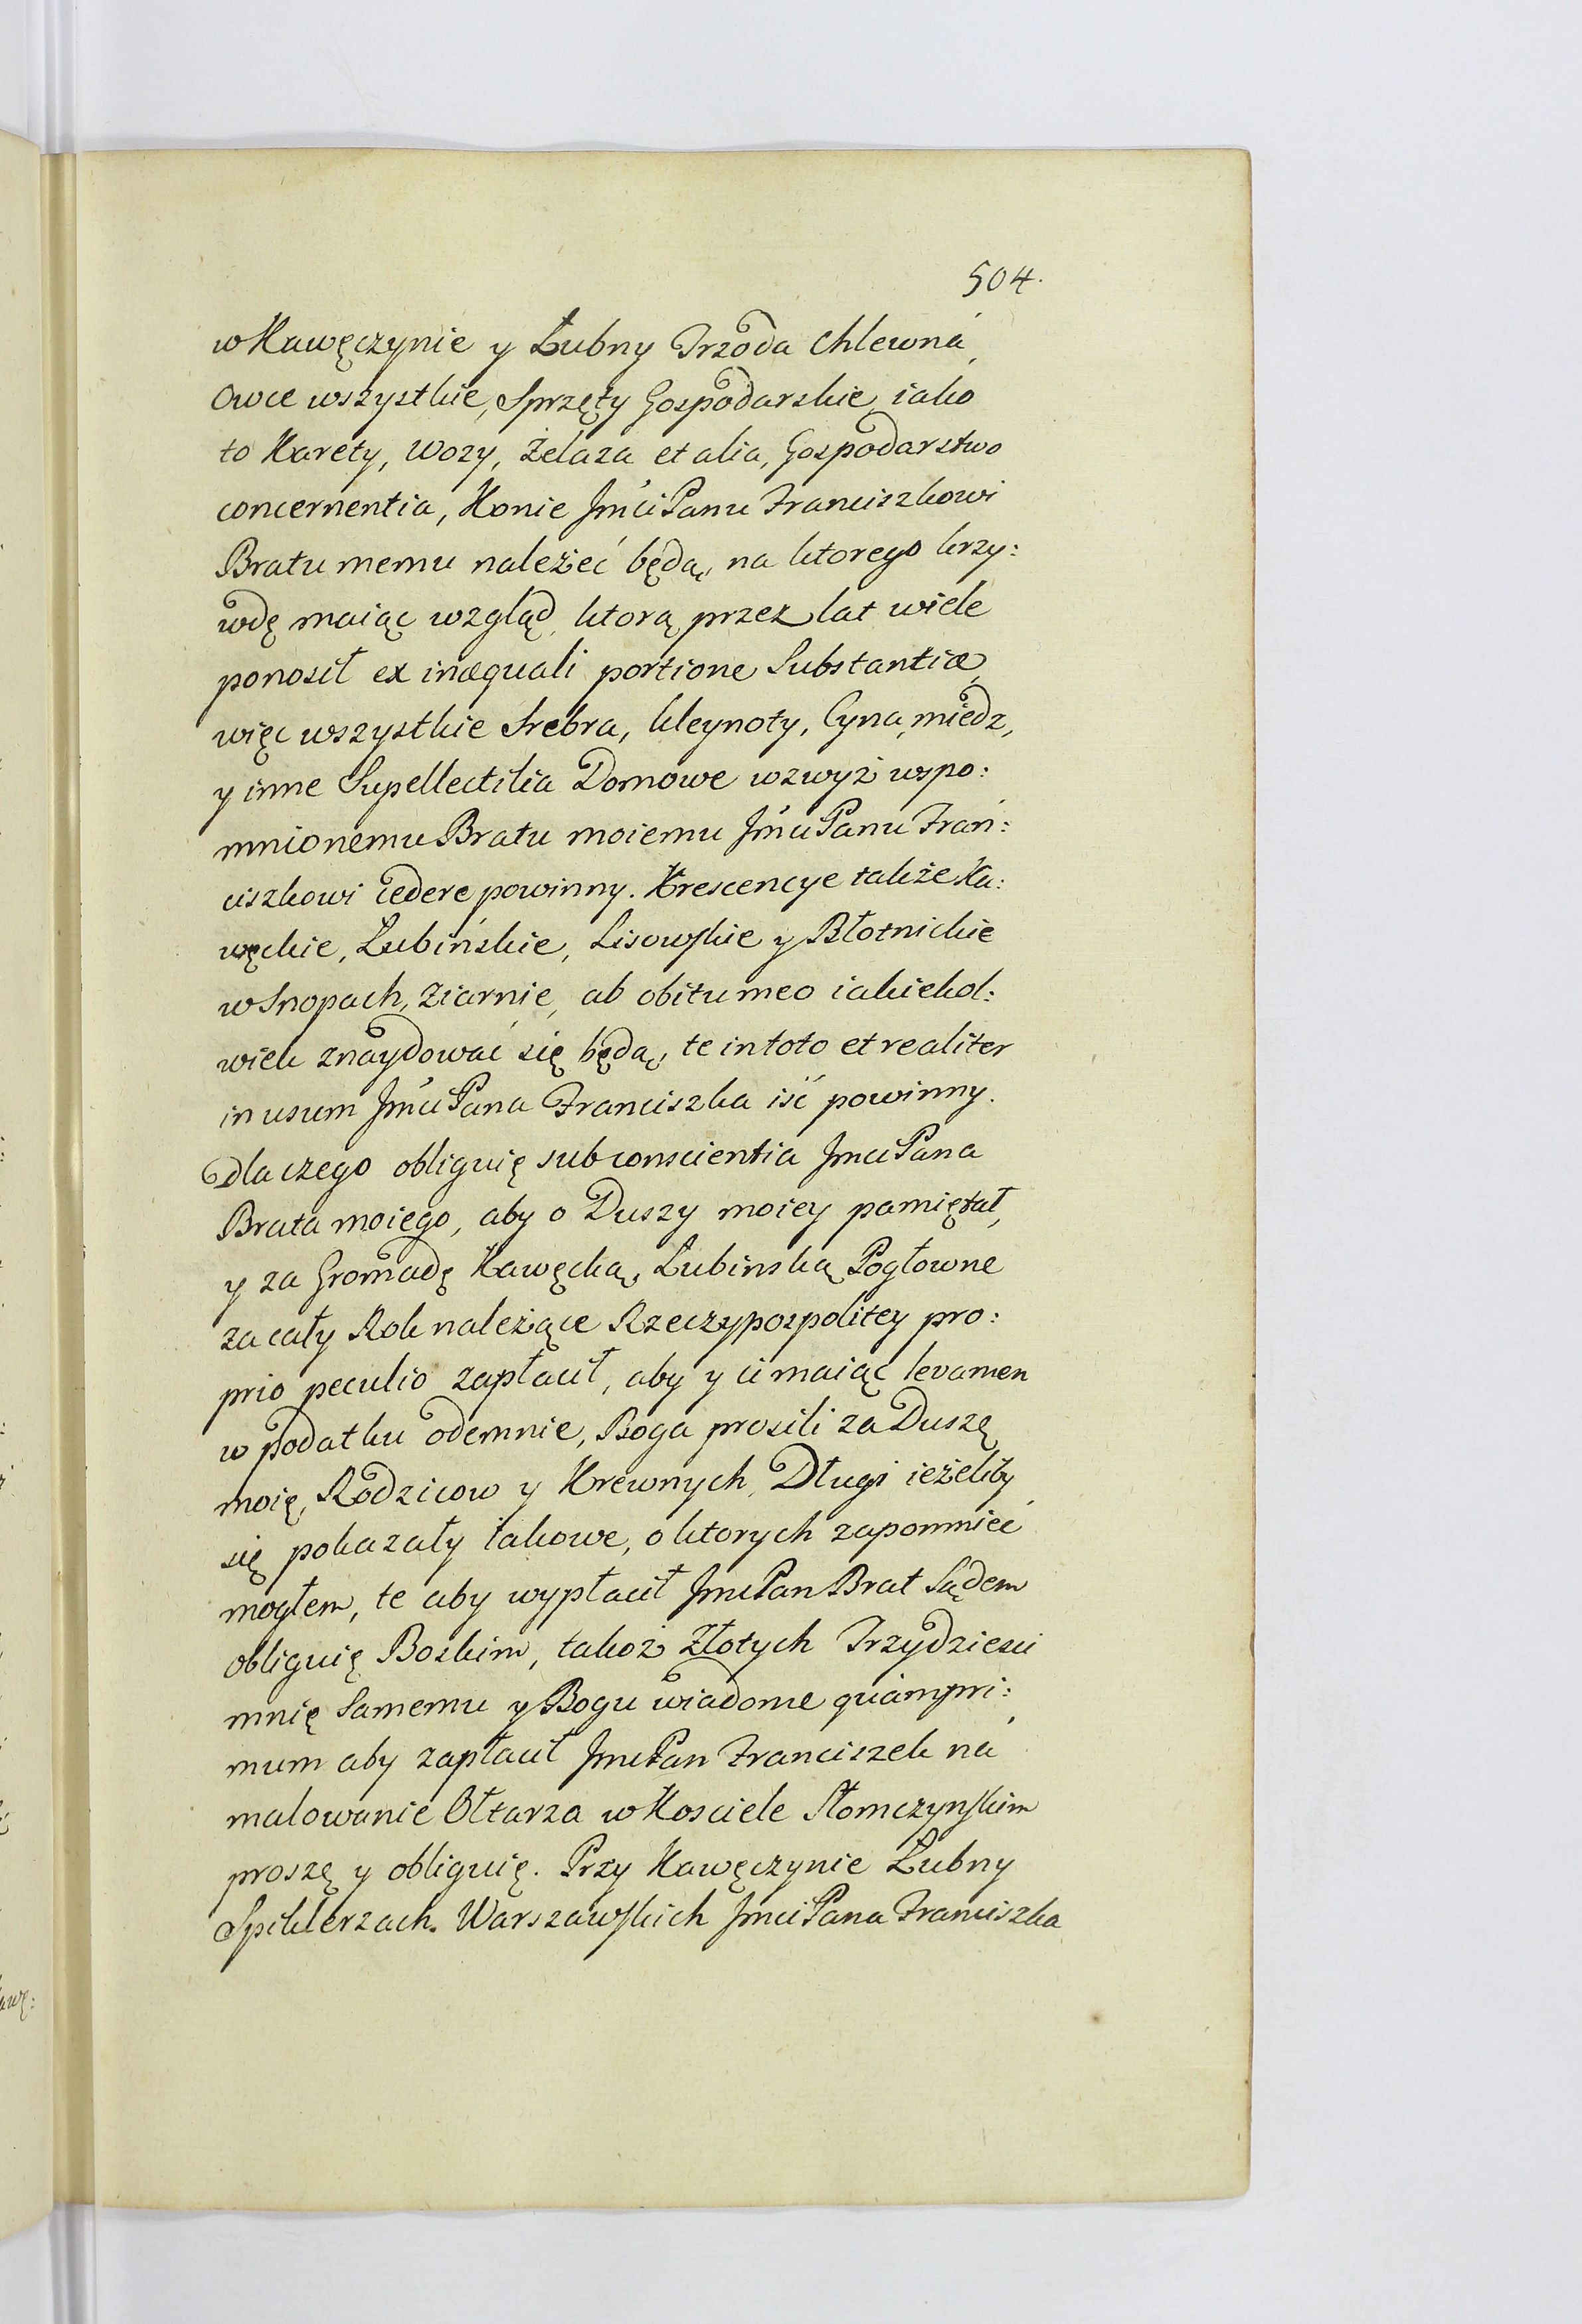 504.
w Kawęczynie y Łubny Trzoda Chlewna,
Owce wszystkie, Sprzęty Gospodarskie iako
to Karety, Wozy, Żelaza et alia, Gospodarstwo
concernentia, Konie Jmći Panu Franciszkowi
Bratu memu należeć będą, na ktorego krzy:
wdę maiąc wzgląd, ktorą przez lat wiele
ponosił ex inæquali portione Substantiæ,
więc wszystkie Srebra, kleynoty, Cyna, miedz,
y inne Supellectilia Domowe wzwyż wspo:
mnionemu Bratu moiemu Jmći Panu Fran:
ciszkowi cedere powinny. Krescencye także Ka:
węckie, Łubińskie, Lisowskie y Błotnickie
w Snopach, Ziarnie, ab obitu meo iakiekol:
wiek znaydować się będą, te in toto et realiter
in usum Jmći Pana Franciszka iść powinny.
Dla czego obliguię sub conscientia Jmci Pana
Brata moiego, aby o Duszy moiey pamiętał,
y za Gromadę Kawęcką, Łubinską Pogłowne
za cały Rok należące Rzeczypospolitey pro:
prio peculio zapłacił, aby y ci maiąc levamen
w podatku odemnie, Boga prosili za Duszę
moię, Rodzicow y Krewnych, Długi ieżeliby
się pokazały iakowe, o ktorych zapomnieć
mogłem, te aby wypłacił Jmci Pan Brat Sądem
obliguię Boskim, takoż Złotych Trzydziesci
mnię Samemu y Bogu wiadome quampri:
mum aby zapłacił Jmci Pan Franciszek na
malowanie Ołtarza w Kosciele Słomczynskim
proszę y obliguię. Przy Kawęczynie Łubny
Spiklerzach Warszawskich Jmci Pana Franciszka